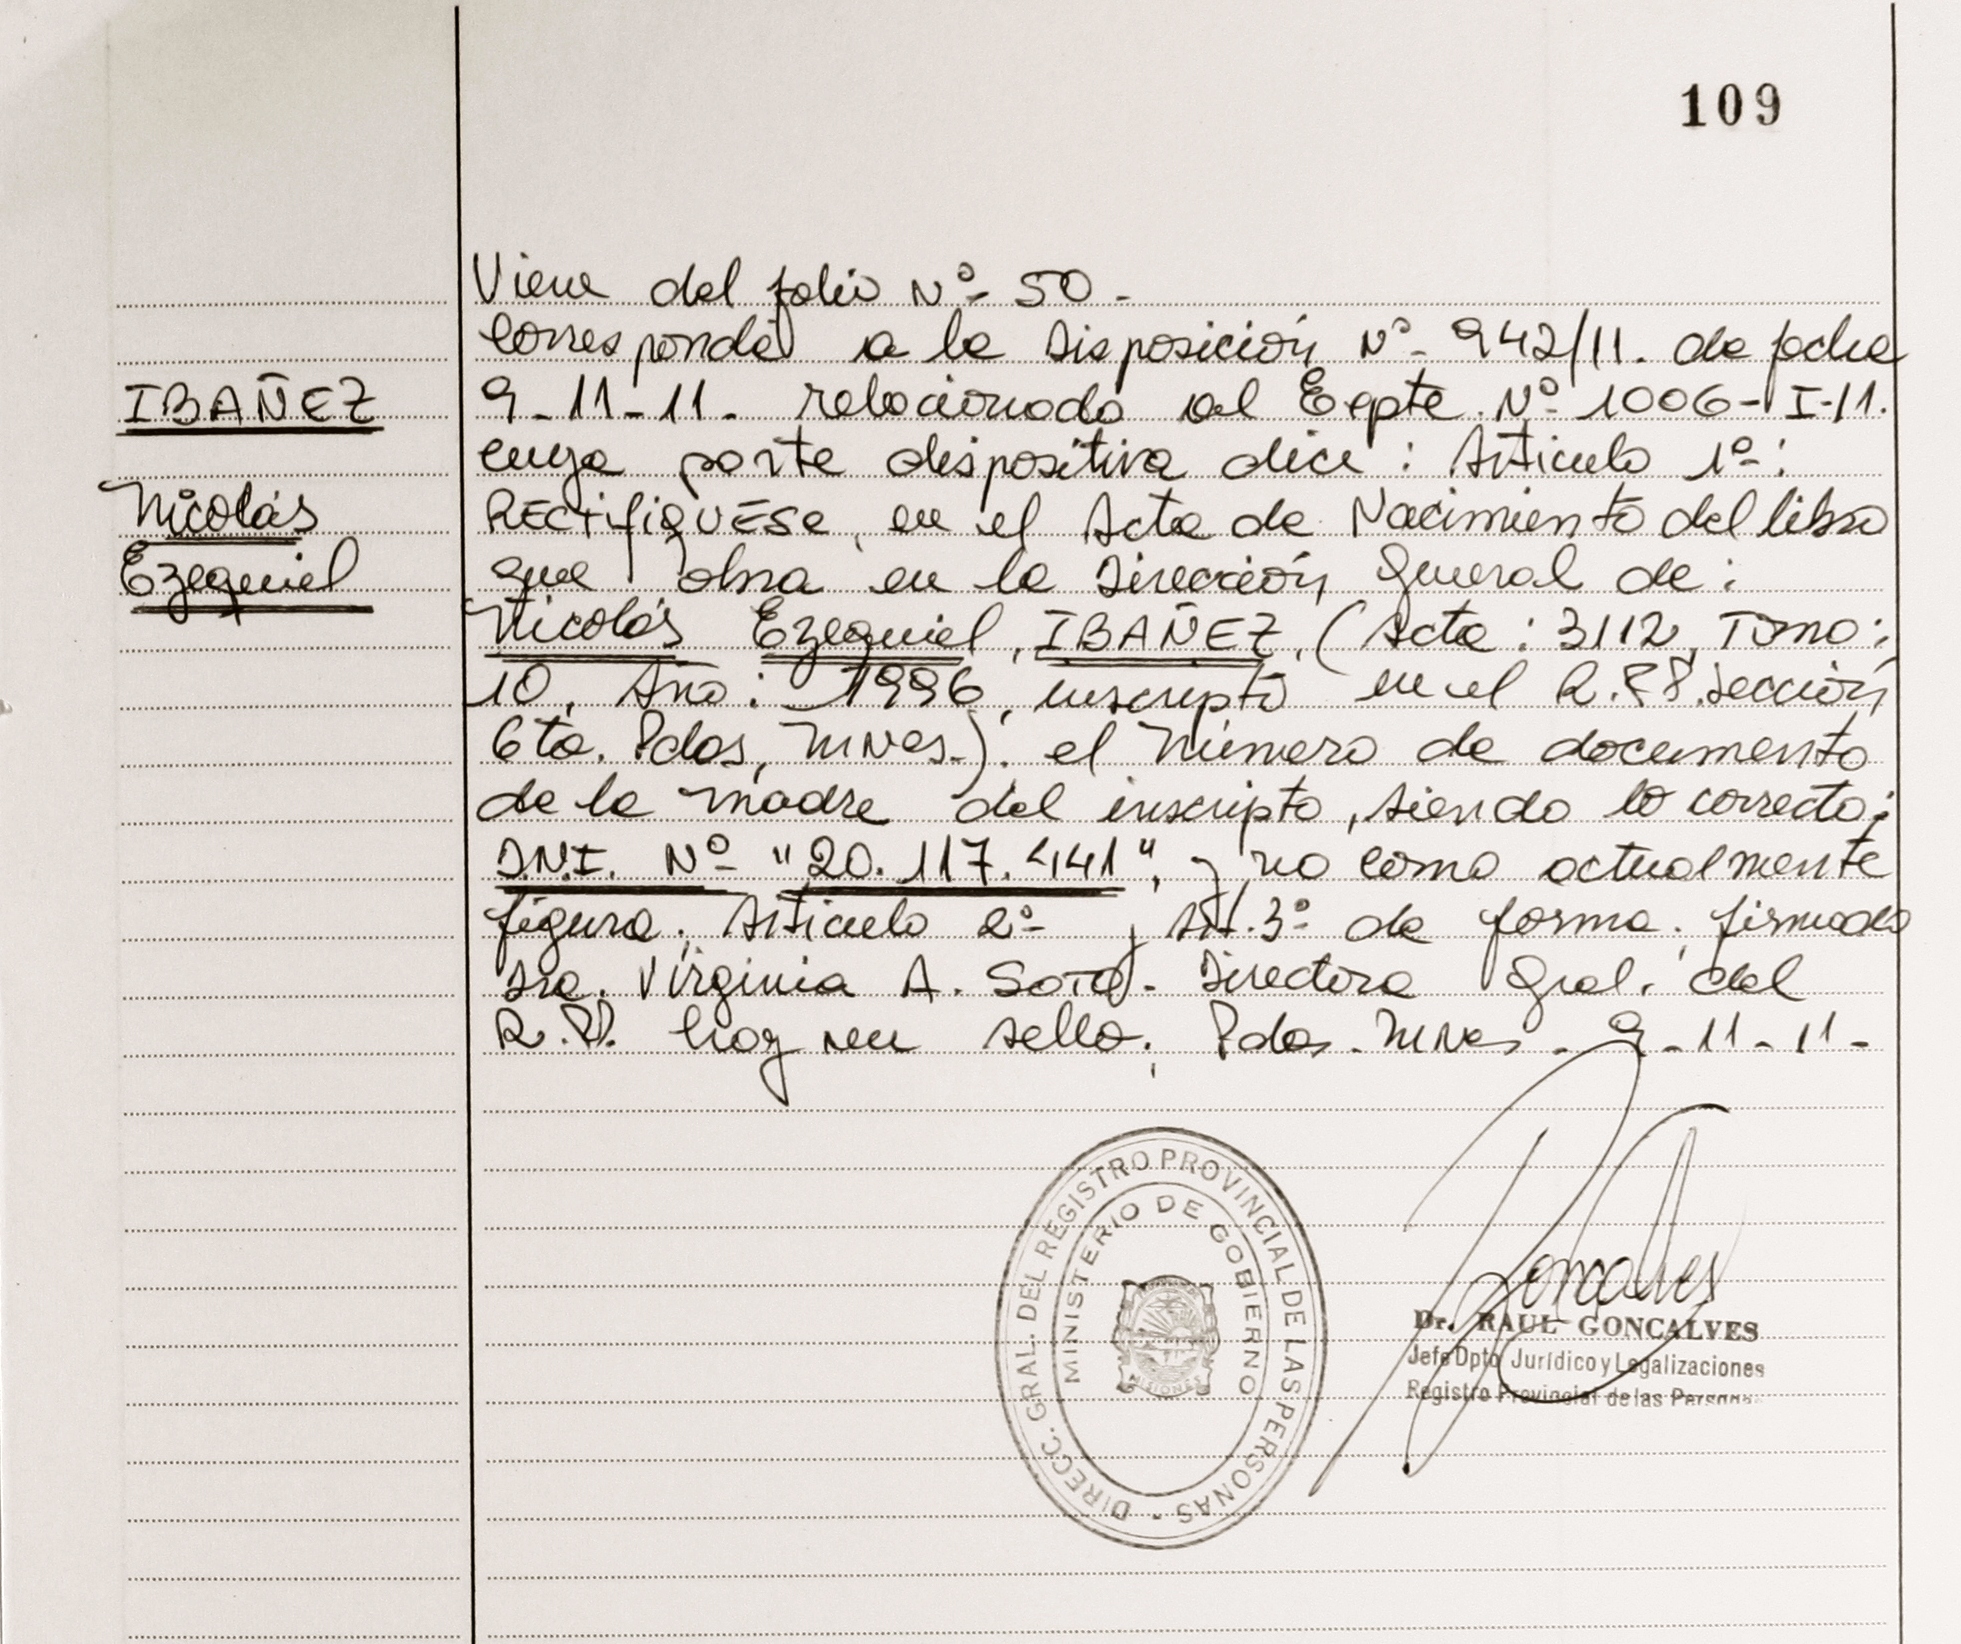 109
Viene del folio Nº 50.-
Corresponde a la Disposición Nº 942/11. de fecha
IBAÑEZ
9-11-11. relacionado al Expte. Nº 1006-I-11.
cuya parte dispositiva dice: Articulo 1º:
Nicolás
RECTIFIQUESE, en el Acta de Nacimiento del libro
Ezequiel
que obra en la Dirección General de:
Nicolás Ezequiel, IBAÑEZ, (Acta: 3112, Tomo:
10, Año: 1996, inscripto en el R.P.P. Sección
6ta. Pdas, Mnes.). el Número de documento
de la madre del inscripto, siendo lo correcto:
D.N.I. Nº "20.117.441", y no como actualmente
figura. Articulo 2º y Art. 3º de forma. firmado
Sra. Virginia A. Soto. Directora Gral. del
R.P.P. hay un sello. Pdas. Mnes. 9-11-11-
DIRECC. GRAL. DEL REGISTRO PROVINCIAL DE LAS PERSONAS -
MINISTERIO DE GOBIERNO
MISIONES
Goncalves
Dr. RAUL GONCALVES
Jefe Dpto Jurídico y Legalizaciones
Registro Provincial de las Personas